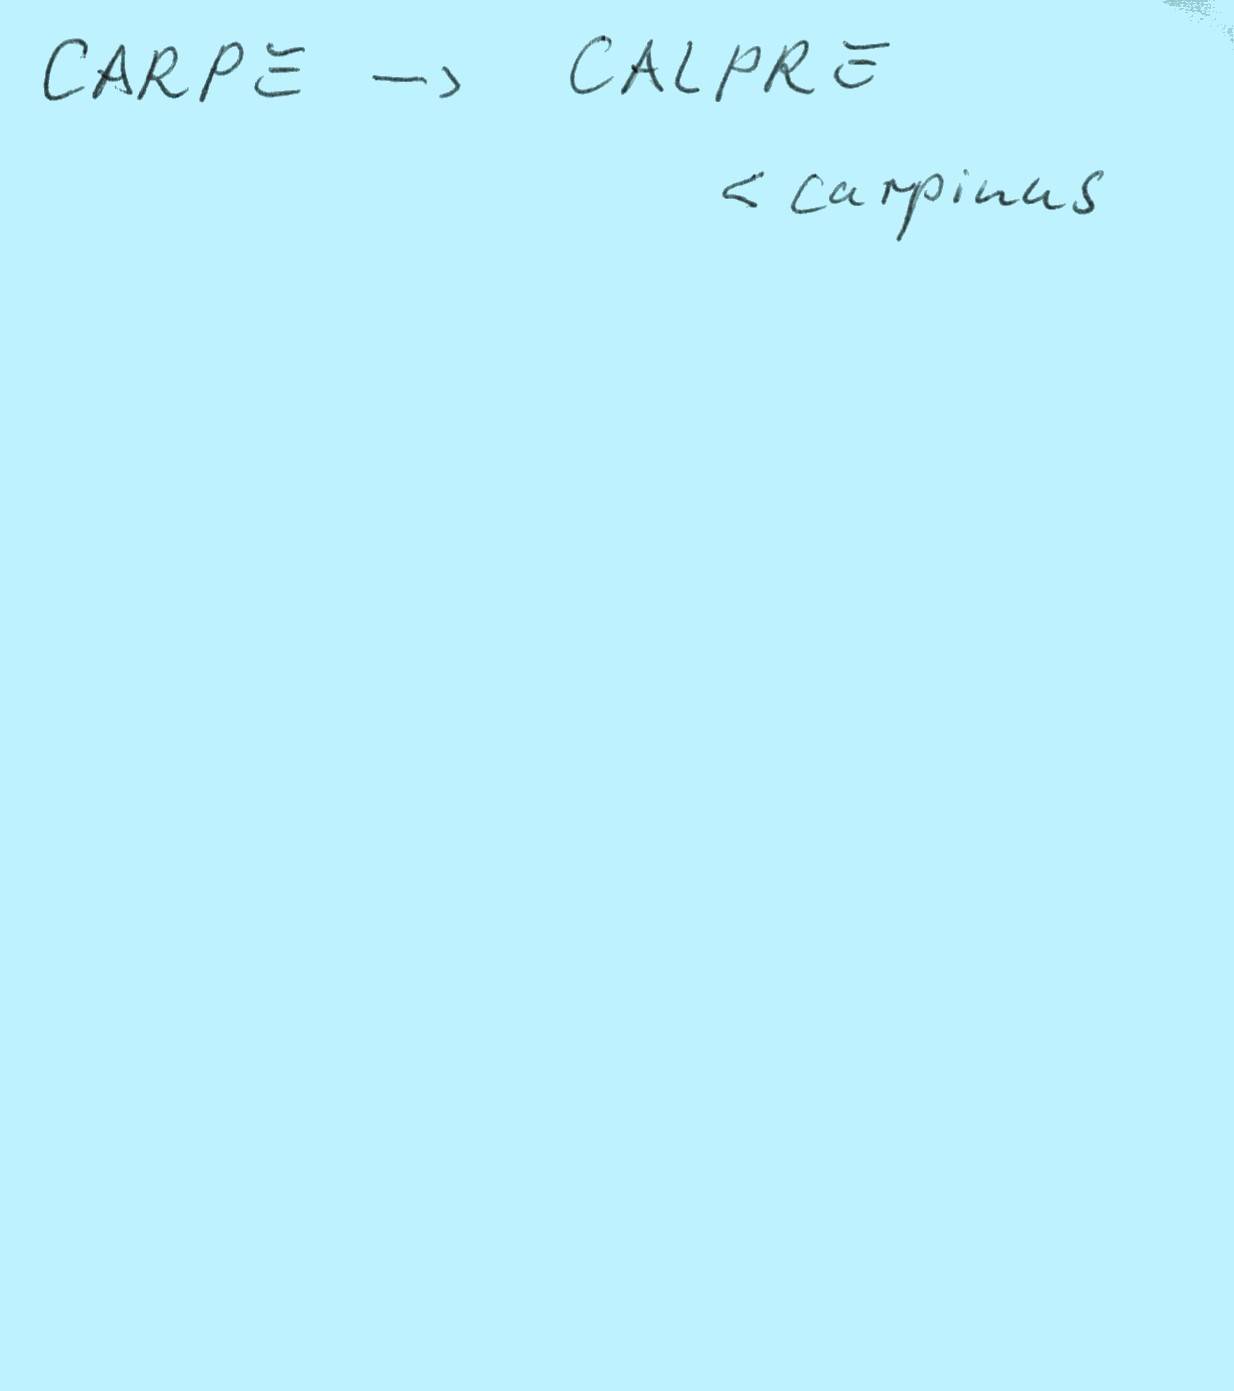 CARPE -> CALPRE
< carpinus